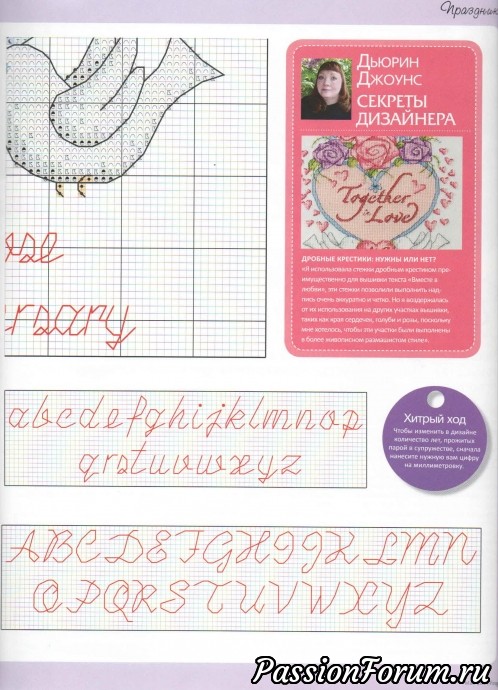 Праздник
ДЬЮРИН
ДЖОУНС
СЕКРЕТЫ
ДИЗАЙНЕРА
Together
in Love
ДРОБНЫЕ КРЕСТИКИ: НУЖНЫ ИЛИ НЕТ?
«Я использовала стежки дробным крестиком пре-
имущественно для вышивки текста «Вместе в
любви», эти стежки позволили выполнить над-
пись очень аккуратно и четко. Но я воздержалась
от их использования на других участках вышивки,
таких как края сердечек, голуби и розы, поскольку
мне хотелось, чтобы эти участки были выполнены
в более живописном размашистом стиле».
ose
ersary
abcdefghijklmnop
qrstuvwxyz
Хитрый ход
Чтобы изменить в дизайне
количество лет, прожитых
парой в супружестве, сначала
нанесите нужную вам цифру
на миллиметровку.
ABCDEFGHIJKLMN
OPQRSTUVWXYZ
PassionForum.ru